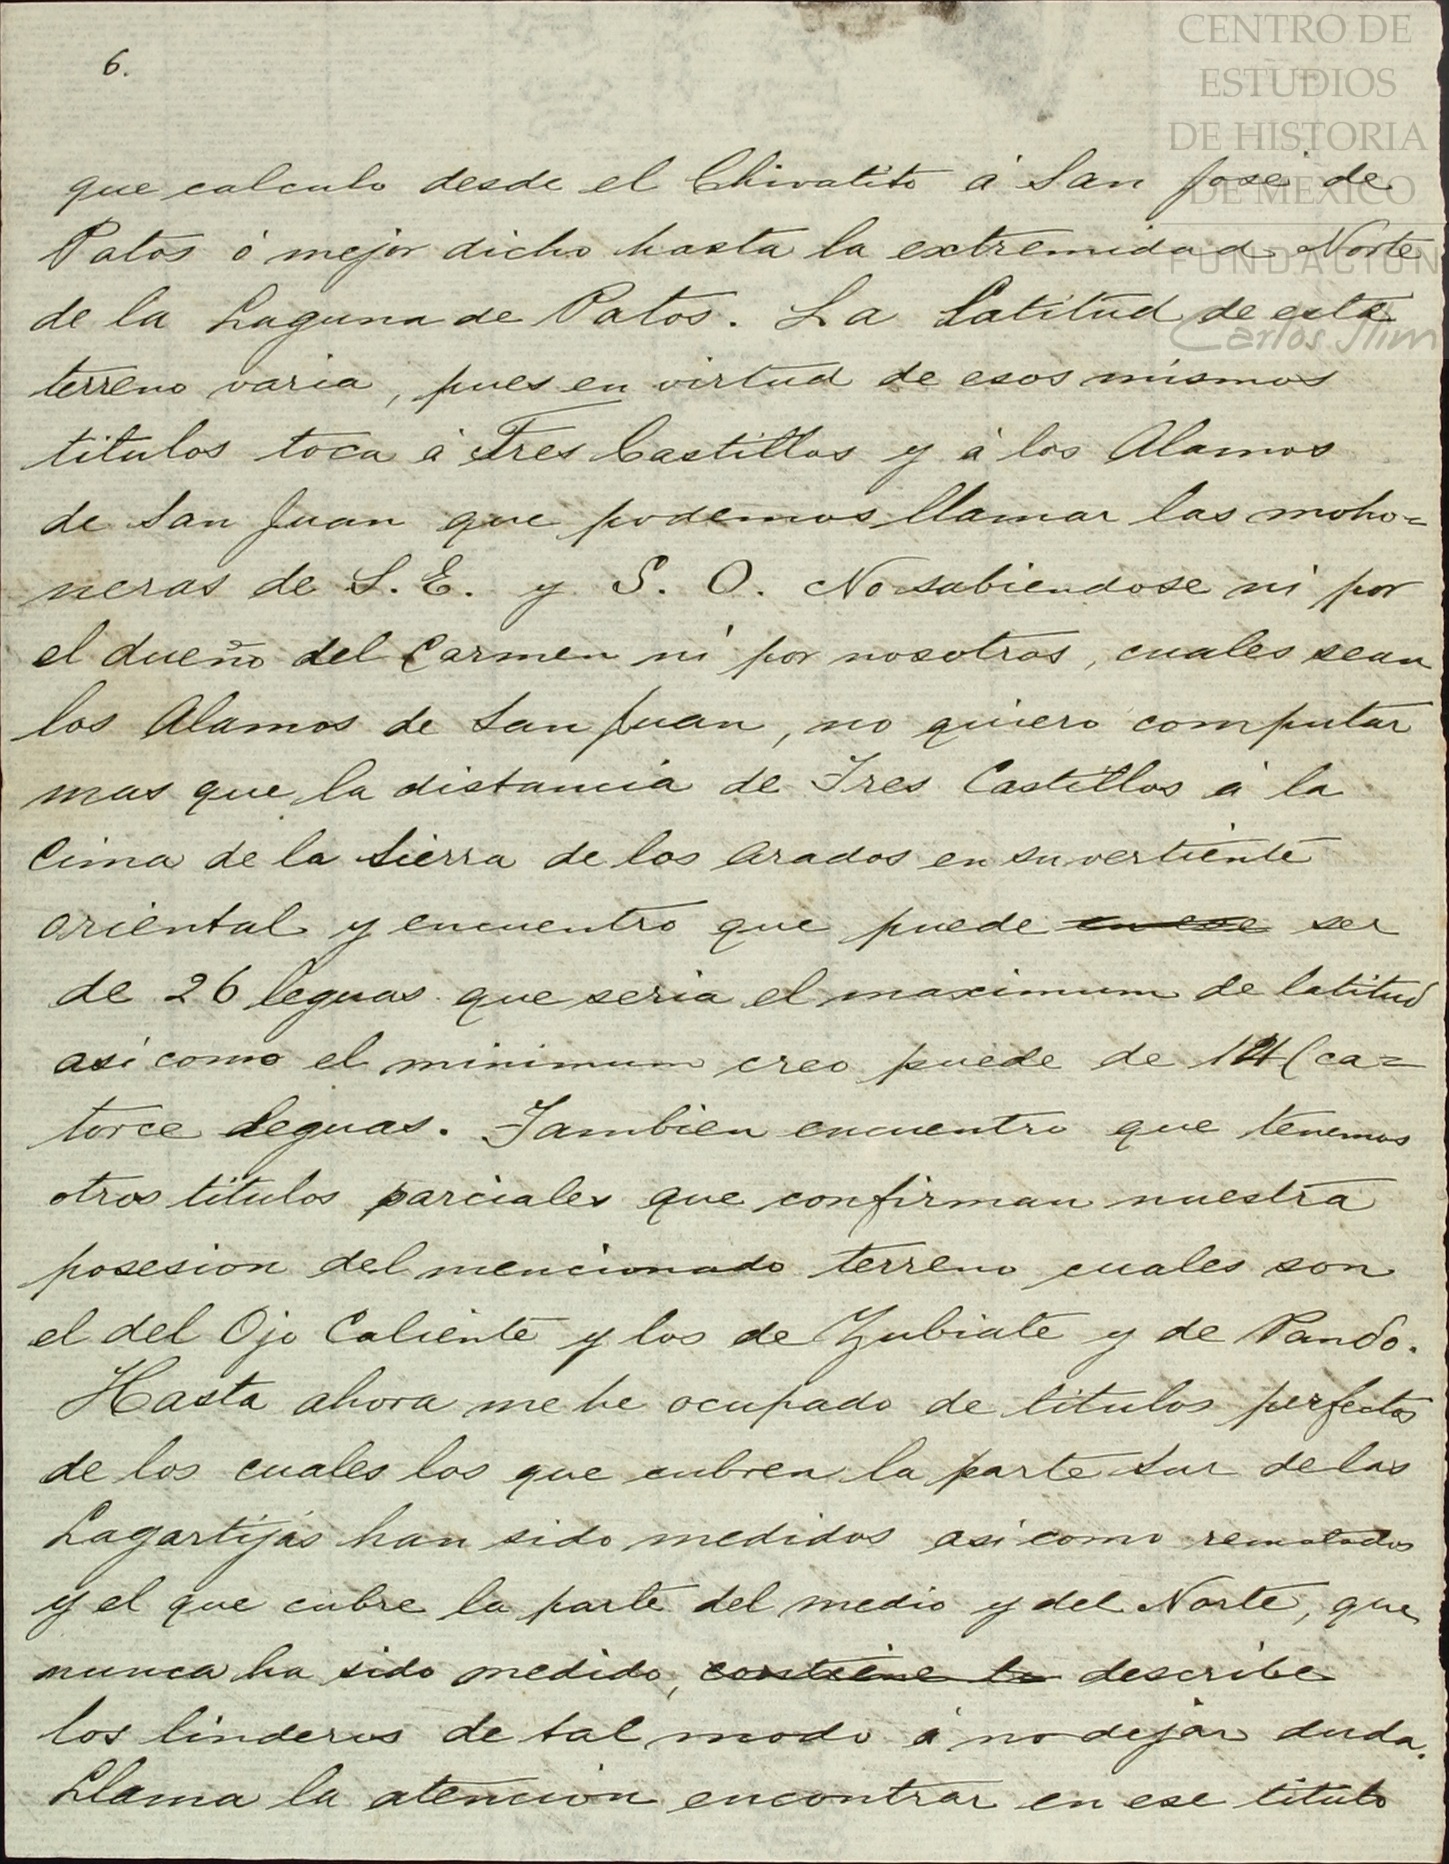 CENTRO DE
ESTUDIOS
DE HISTORIA
DE MÉXICO
FUNDACIÓN
Carlos Slim
6.
que calculo desde el Chivatito á San José de
Patos ó mejor dicho hasta la extremidad Norte
de la Laguna de Patos. La Latitud de este
terreno varia, pues en virtud de esos mismos
titulos toca á Tres Castillos y á los Alamos
de San Juan que podemos llamar las moho=
neras de S. E. y S. O. No sabiendose ni por
el dueño del Carmen ni por nosotros, cuales sean
los Alamos de San Juan, no quiero computar
mas que la distancia de Tres Castillos á la
Cima de la Sierra de los Arados en su vertiente
oriental y encuentro que puede en ese ser
de 26 leguas que seria el maximum de latitud
asi como el minimum creo puede de 14 (ca=
torce leguas. Tambien encuentro que tenemos
otros titulos parciales que confirman nuestra
posesion del mencionado terreno cuales son
el del Ojo Caliente y los de Zubiate y de Pando.
Hasta ahora me he ocupado de titulos perfectos
de los cuales los que cubren la parte Sur de las
Lagartijas han sido medidos asi como rematados
y el que cubre la parte del medio y del Norte, que
nunca ha sido medido, contiene la describe
los linderos de tal modo á no dejar duda.
Llama la atencion encontrar en ese titulo